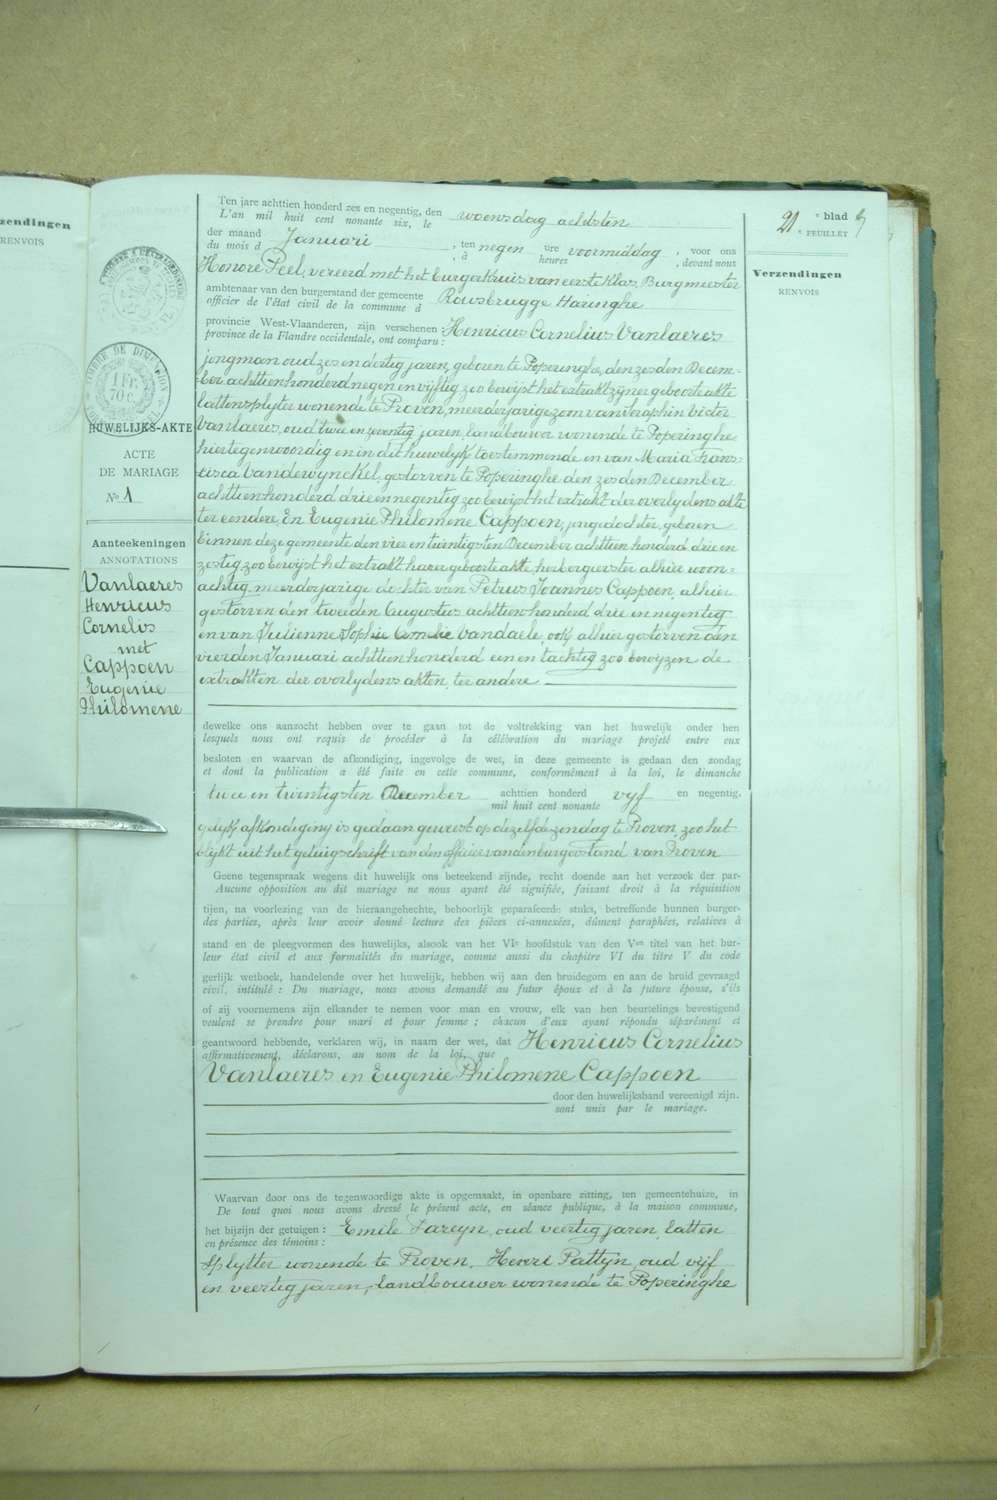 zendingen
RENVOIS
21 e blad
e FEUILLET
Verzendingen
RENVOIS
TIMBRE DE DIMENSION
1 Fr.
70 c.
HUWELIJKS-AKTE
ACTE
DE MARIAGE
No 1
Aanteekeningen
ANNOTATIONS
Vanlaeres
Henricus
Cornelis
met
Cappoen
Eugenie
Philomene
Ten jare achttien honderd zes en negentig, den woensdag achtsten
L'an mil huit cent nonante six, le
der maand Januari, ten negen ure voormiddag, voor ons
du mois d , à heures , devant nous
Honoré Peel, vereerd met het Burgerkruis van eerste Klas, Burgmeester
ambtenaar van den burgerstand der gemeente Rousbrugge Haringhe
officier de l'état civil de la commune d
provincie West-Vlaanderen, zijn verschenen: Henricus Cornelius Vanlaeres
province de la Flandre occidentale, ont comparu:
jongman oud zes en dertig jaren, geboren te Poperinghe, den zesden Decem-
ber achttien honderd negen en vijftig zoo bewijst het extrakt zijner geboorte akte
lattensplyter wonende te Proven, meerderjarige zoon van Seraphin Victor
Vanlaeres, oud twee en zeventig jaren, landbouwer wonende te Poperinghe
hiertegenwoordig en in dit huwelyk toestemmende en van Maria Fran-
cisca Vandewynckel, gestorven te Poperinghe den zesden December
achttien honderd drie en negentig zoo bewijst het extrakt der overlydens akte
ter eendere, En Eugenie Philomene Cappoen, jonge dochter, geboren
binnen deze gemeente den vier en twintigsten December achttien honderd drie en
zestig zoo bewijst het extrakt harer geboorteakte, herbergierster alhier woon-
achtig, meerderjarige dochter van Petrus Joannes Cappoen, alhier
gestorven den tweeden Augustus achttien honderd drie en negentig
en van Julienne Sophie Amelie Vandaele, ook alhier gestorven den
vierden Januari achttien honderd een en tachtig zoo bewijzen de
extrakten der overlydens akten, ter andere
dewelke ons aanzocht hebben over te gaan tot de voltrekking van het huwelijk onder hen
lesquels nous ont requis de procéder à la célébration du mariage projeté entre eux
besloten en waarvan de afkondiging, ingevolge de wet, in deze gemeente is gedaan den zondag
et dont la publication a été faite en cette commune, conformément à la loi, le dimanche
twee en twintigsten December achttien honderd vijf en negentig,
mil huit cent nonante
gelyk afkondiging is gedaan geweest op dezelfde zondag te Proven, zoo het
blijkt uit het getuigschrift van den officier van den burgerstand van Proven
Geene tegenspraak wegens dit huwelijk ons beteekend zijnde, recht doende aan het verzoek der par-
Aucune opposition au dit mariage ne nous ayant été signifiée, faisant droit à la réquisition
tijen, na voorlezing van de hieraangehechte, behoorlijk geparafeerde stuks, betreffende hunnen burger-
des parties, après leur avoir donné lecture des pièces ci-annexées, dûment paraphées, relatives à
stand en de pleegvormen des huwelijks, alsook van het VIe hoofdstuk van den Ven titel van het bur-
leur état civil et aux formalités du mariage, comme aussi du chapitre VI du titre V du code
gerlijk wetboek, handelende over het huwelijk, hebben wij aan den bruidegom en aan de bruid gevraagd
civil, intitulé: Du mariage, nous avons demandé au futur époux et à la future épouse, s'ils
of zij voornemens zijn elkander te nemen voor man en vrouw, elk van hen beurtelings bevestigend
veulent se prendre pour mari et pour femme; chacun d'eux ayant répondu séparément et
geantwoord hebbende, verklaren wij, in naam der wet, dat Henricus Cornelius
affirmativement, déclarons, au nom de la loi, que
Vanlaeres en Eugenie Philomene Cappoen
door den huwelijksband vereenigd zijn.
sont unis par le mariage.
Waarvan door ons de tegenwoordige akte is opgemaakt, in openbare zitting, ten gemeentehuize, in
De tout quoi nous avons dressé le présent acte, en séance publique, à la maison commune,
het bijzijn der getuigen: Emile Fareyn, oud veertig jaren, latten
en présence des témoins:
splytter wonende te Proven, Henri Pattyn oud vijf
en veertig jaren, landbouwer wonende te Poperinghe